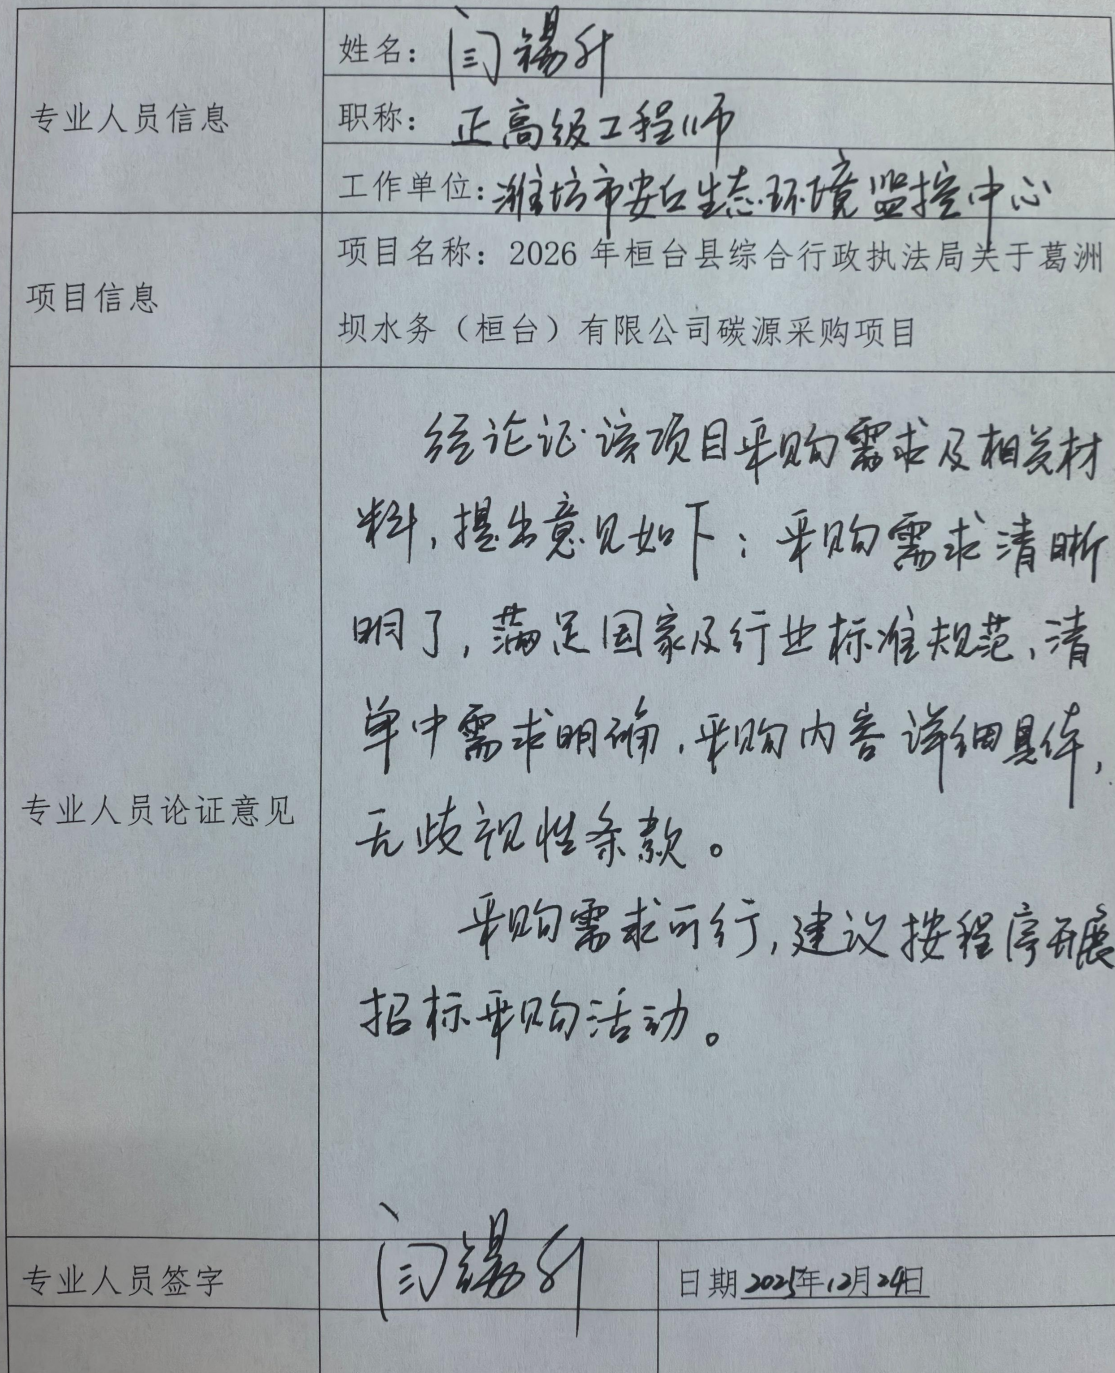 专业人员信息
姓名：闫锡升
职称：正高级工程师
工作单位：潍坊市安丘生态环境监控中心
项目信息
项目名称：2026年桓台县综合行政执法局关于葛洲
坝水务（桓台）有限公司碳源采购项目
专业人员论证意见
经论证该项目采购需求及相关材
料，提出意见如下：采购需求清晰
明了，满足国家及行业标准规范，清
单中需求明确，采购内容详细具体，
无歧视性条款。
采购需求可行，建议按程序开展
招标采购活动。
专业人员签字
闫锡升
日期2025年12月24日